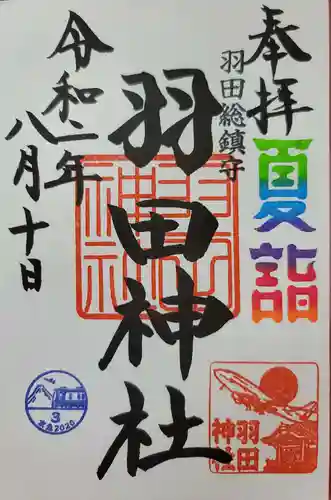 奉拝
夏詣
羽田総鎮守
羽田神社
令和二年
八月十日
羽田
神社
3
2020